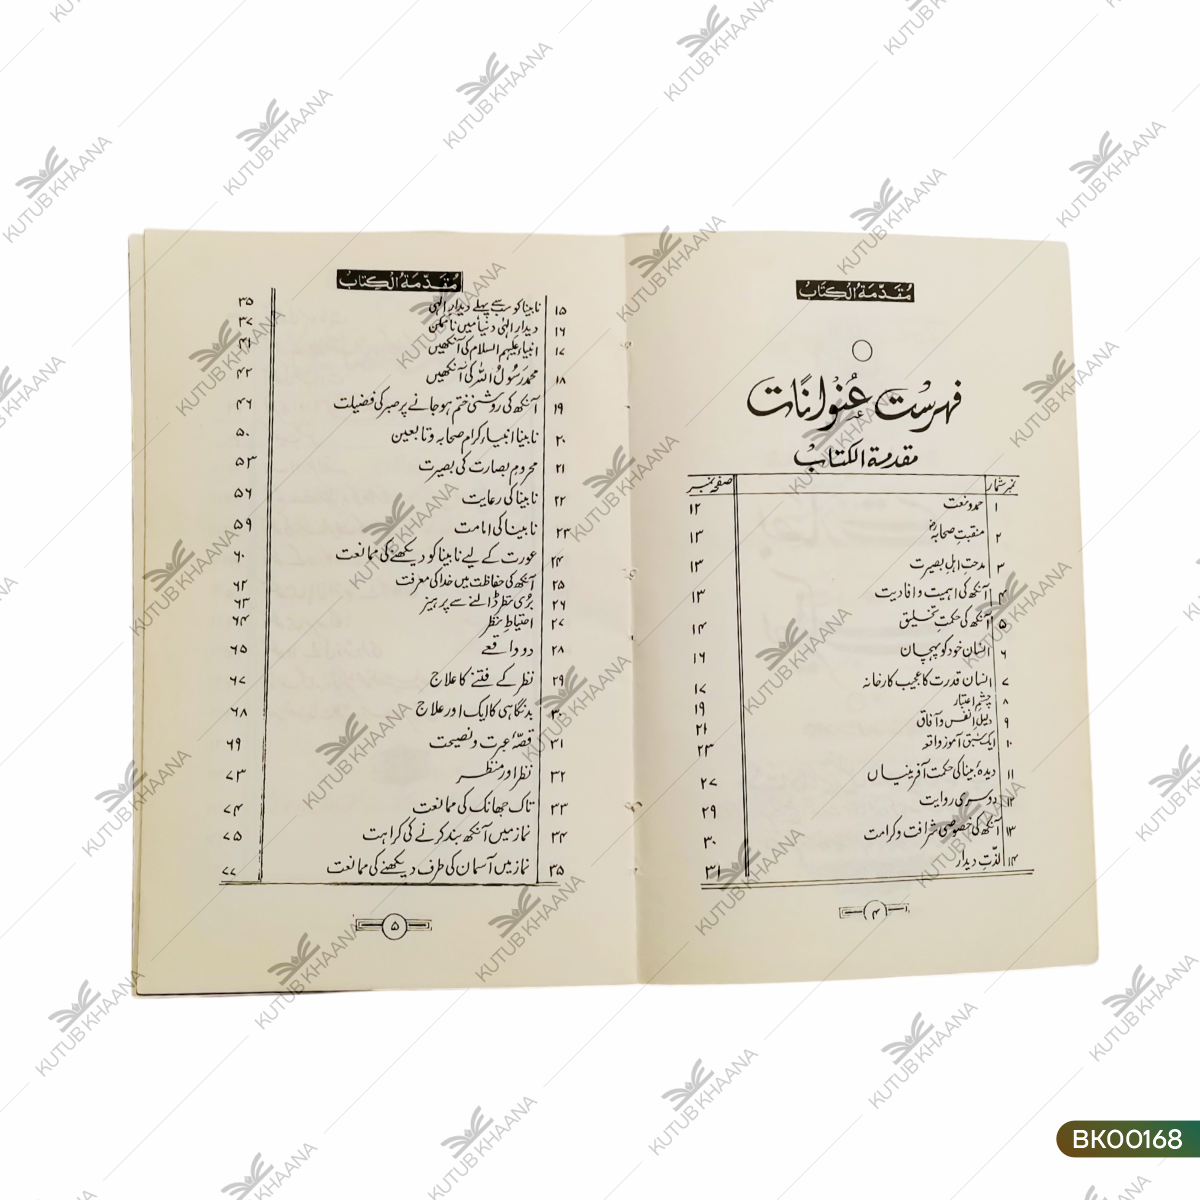 مقدمة الکتاب
فہرست عنوانات
مقدمۃ الکتاب
نمبر شمار صفحہ نمبر
۱ حمد و نعت ۱۲
۲ منقبت صحابہؓ ۱۳
۳ مدحت اہل بصیرت ۱۳
۴ آنکھ کی اہمیت و افادیت ۱۳
۵ آنکھ کی حکمت تخلیق ۱۴
۶ انسان خود کو پہچان ۱۶
۷ انسان قدرت کا عجیب کارخانہ ۱۷
۸ چشم اعتبار ۱۹
۹ دلیل انفس و آفاق ۲۱
۱۰ ایک سبق آموز واقعہ ۲۳
۱۱ دیدہ بینا کی حکمت آفرینیاں ۲۷
۱۲ دوسری روایت ۲۹
۱۳ آنکھ کی خصوصی شرافت و کرامت ۳۰
۱۴ لذت دیدار ۳۱
۴
مقدمة الکتاب
۱۵ نابینا کو سب سے پہلے دیدار الٰہی ۳۵
۱۶ دیدار الٰہی دنیا میں ناممکن ۳۷
۱۷ انبیاء علیہم السلام کی آنکھیں ۴۱
۱۸ محمد رسول اللہ کی آنکھیں ۴۲
۱۹ آنکھ کی روشنی ختم ہو جانے پر صبر کی فضیلت ۴۶
۲۰ نابینا انبیاء کرام صحابہ و تابعین ۵۰
۲۱ محروم بصارت کی بصیرت ۵۳
۲۲ نابینا کی رعایت ۵۶
۲۳ نابینا کی امامت ۵۹
۲۴ عورت کے لیے نابینا کو دیکھنے کی ممانعت ۶۰
۲۵ آنکھ کی حفاظت میں خدا کی معرفت ۶۲
۲۶ بُری نظر ڈالنے سے پرہیز ۶۳
۲۷ احتیاط نظر ۶۴
۲۸ دو واقعے ۶۵
۲۹ نظر کے فتنے کا علاج ۶۷
۳۰ بدنگاہی کا ایک اور علاج ۶۸
۳۱ قصۂ عبرت و نصیحت ۶۹
۳۲ نظر اور منظر ۷۳
۳۳ تاک جھانک کی ممانعت ۷۴
۳۴ نماز میں آنکھ بند کرنے کی کراہت ۷۵
۳۵ نماز میں آسمان کی طرف دیکھنے کی ممانعت ۷۷
۵
KUTUB KHAANA
BK00168